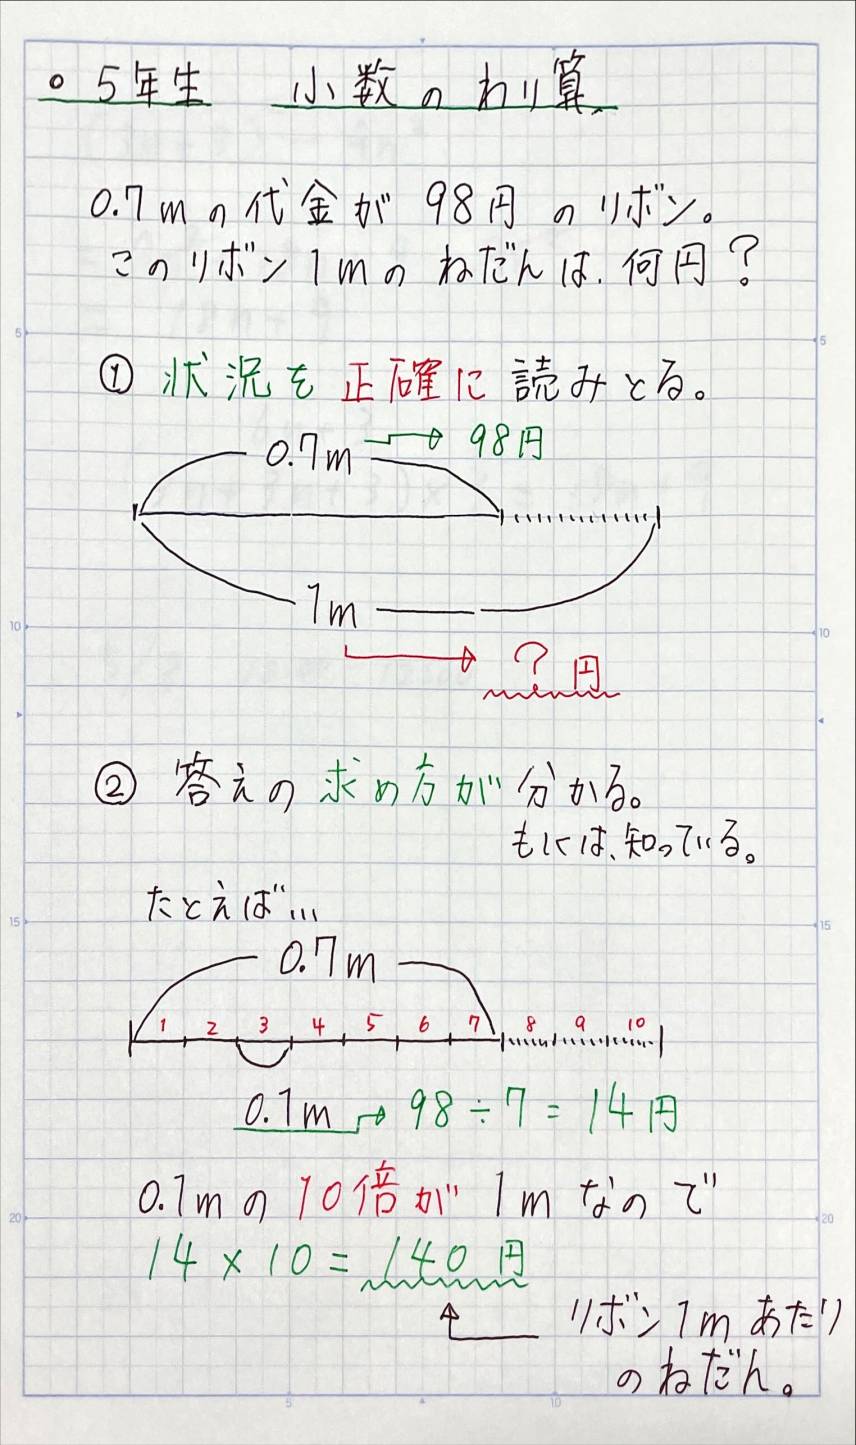 。5年生 小数のわり算
0.7mの代金が98円のリボン。
このリボン1mのねだんは、何円？
① 状況を正確に読みとる。
0.7m → 98円
1m
→ ？円
② 答えの求め方が分かる。
もしくは、知っている。
たとえば…
0.7m
1 2 3 4 5 6 7 8 9 10
0.1m → 98÷7=14円
0.1mの10倍が1mなので
14×10=140円
リボン1mあたり
のねだん。
5 5
10 10
15 15
20 20
5 10